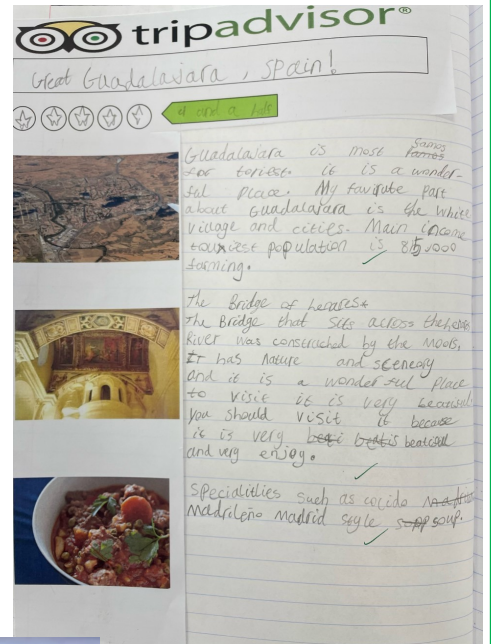 tripadvisor®
Great Guadalajara, Spain!
4 and a half
Guadalajara is most famos
for toriest. it is a wonder-
ful place. My favirute part
about Guadalajara is the white
village and cities. Main income
touriest population is 85,000
farming.
The Bridge of henares
The Bridge that sits across the henares
River was constructed by the Moors.
It has nature and sceneory
and it is a wonder ful place
to visit it is very beatiul
you should visit it because
it is very beatioul
and very enjoy.
Specialitlies such as cocido
Madrileño Madrid style soup.